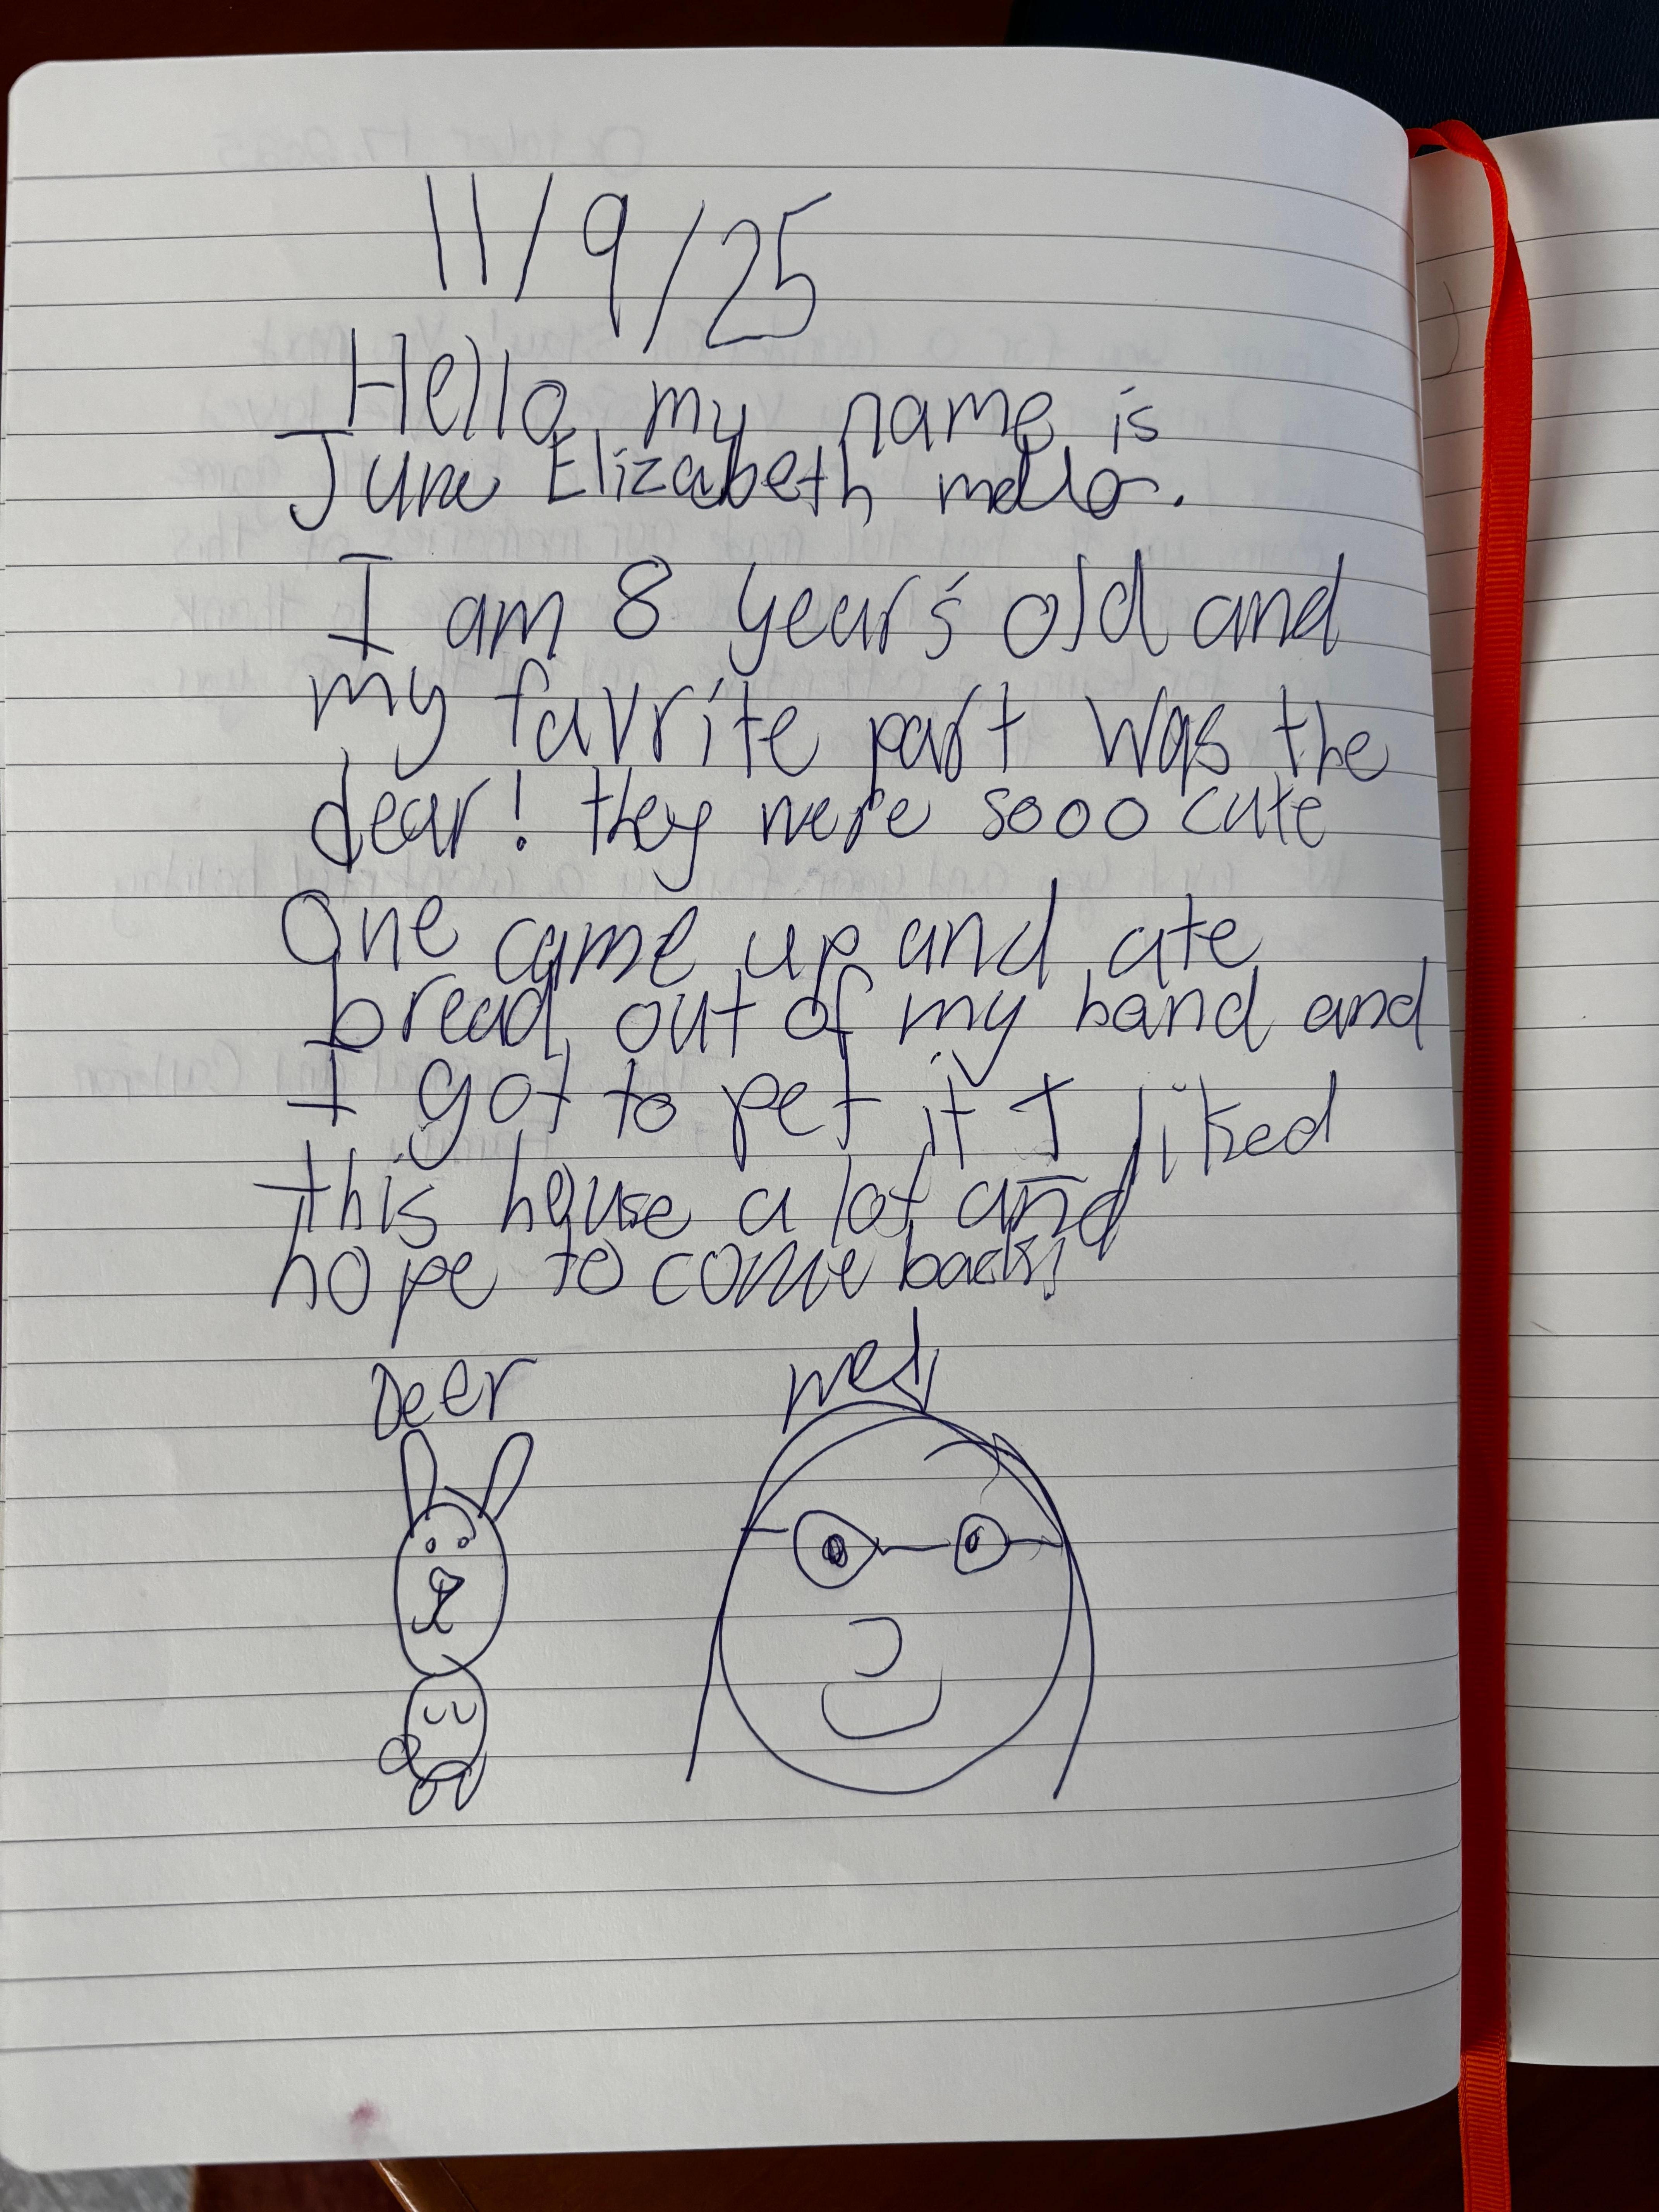 11/9/25
Hello my name is
June Elizabeth mello.
I am 8 year's old and
my favrite part was the
dear! they were sooo cute
One came up and ate
bread out of my hand and
I got to pet it I liked
this house a lot and
hope to come back!
Deer
me↓